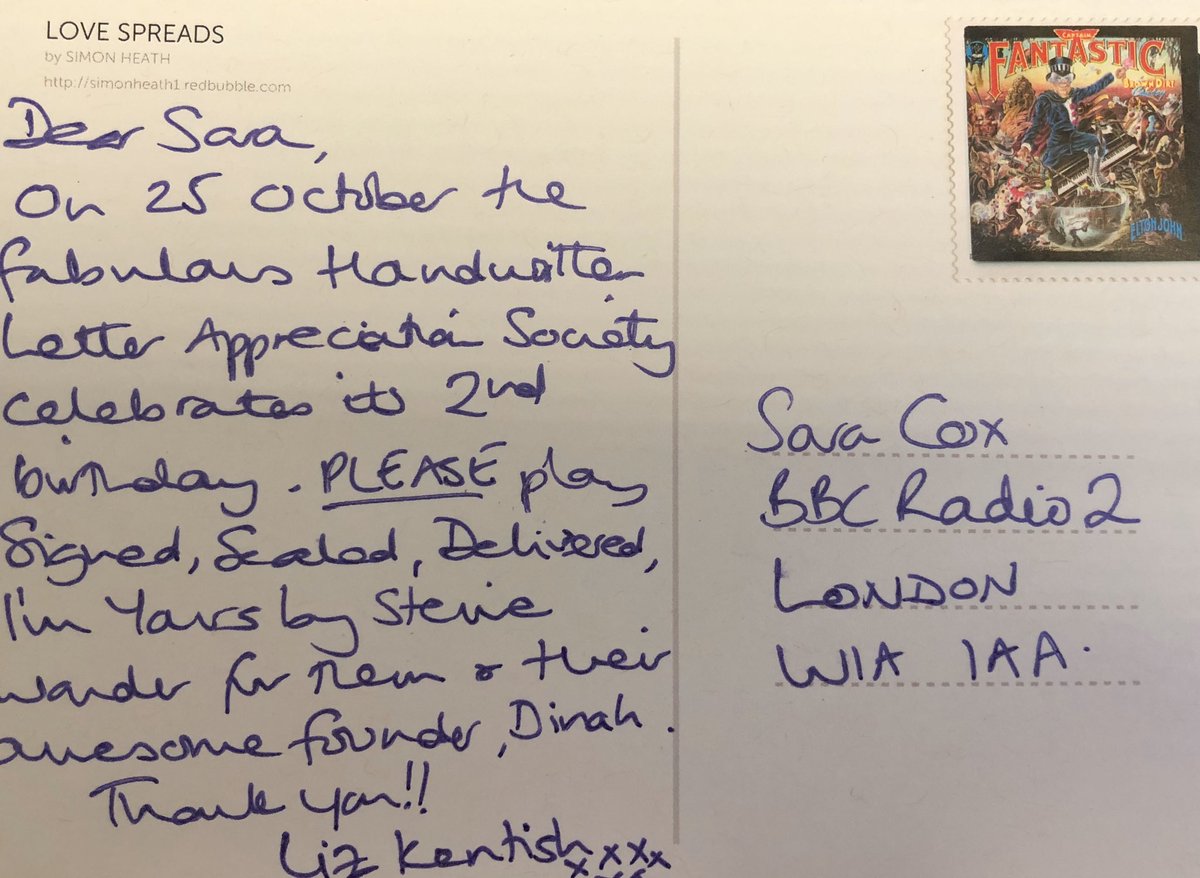 LOVE SPREADS
by SIMON HEATH
http://simonheath1.redbubble.com
Dear Sara,
On 25 October the
fabulous Handwritten
Letter Appreciation Society
celebrates its 2nd
birthday. PLEASE play
Signed, Sealed, Delivered,
I'm Yours by Stevie
Wonder for them & their
awesome founder, Dinah.
Thank you!!
Liz Kentish xxxx
CAPTAIN
FANTASTIC
ELTON JOHN
Sara Cox
BBC Radio 2
LONDON
W1A 1AA.